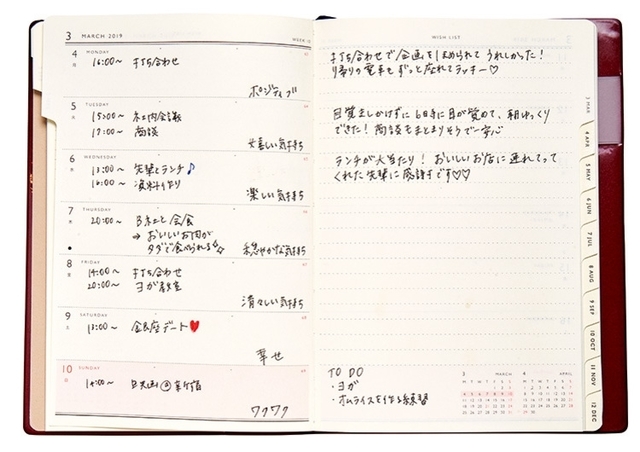 3 MARCH 2019
WEEK 10
4 MONDAY
月
16:00〜 打ち合わせ
ポジティブ
5 TUESDAY
火
15:00〜 社内会議
19:00〜 商談
女喜しい気持ち
6 WEDNESDAY
水
13:00〜 先輩とランチ♪
16:00〜 資料作り
楽しい気持ち
7 THURSDAY
木
20:00〜 B社と会食
→おいしいお肉が
タダで食べられる☆
穏やかな気持ち
8 FRIDAY
金
14:00〜 打ち合わせ
20:00〜 ヨガ教室
清々しい気持ち
9 SATURDAY
土
13:00〜 銀座デート♥
幸せ
10 SUNDAY
日
14:00〜 映画@新宿
ワクワク
WISH LIST
打ち合わせで企画をほめられてうれしかった！
帰りの電車もずっと座れてラッキー♡
目覚ましかけずに6時に目が覚めて、朝ゆっくり
できた！商談もまとまりそうで一安心
ランチが大当たり！おいしいお店に連れてって
くれた先輩に感謝です♡♡
TO DO
・ヨガ
・オムライスを作る練習
3 MARCH
4 APRIL
3 MAR
4 APR
5 MAY
6 JUN
7 JUL
8 AUG
9 SEP
10 OCT
11 NOV
12 DEC